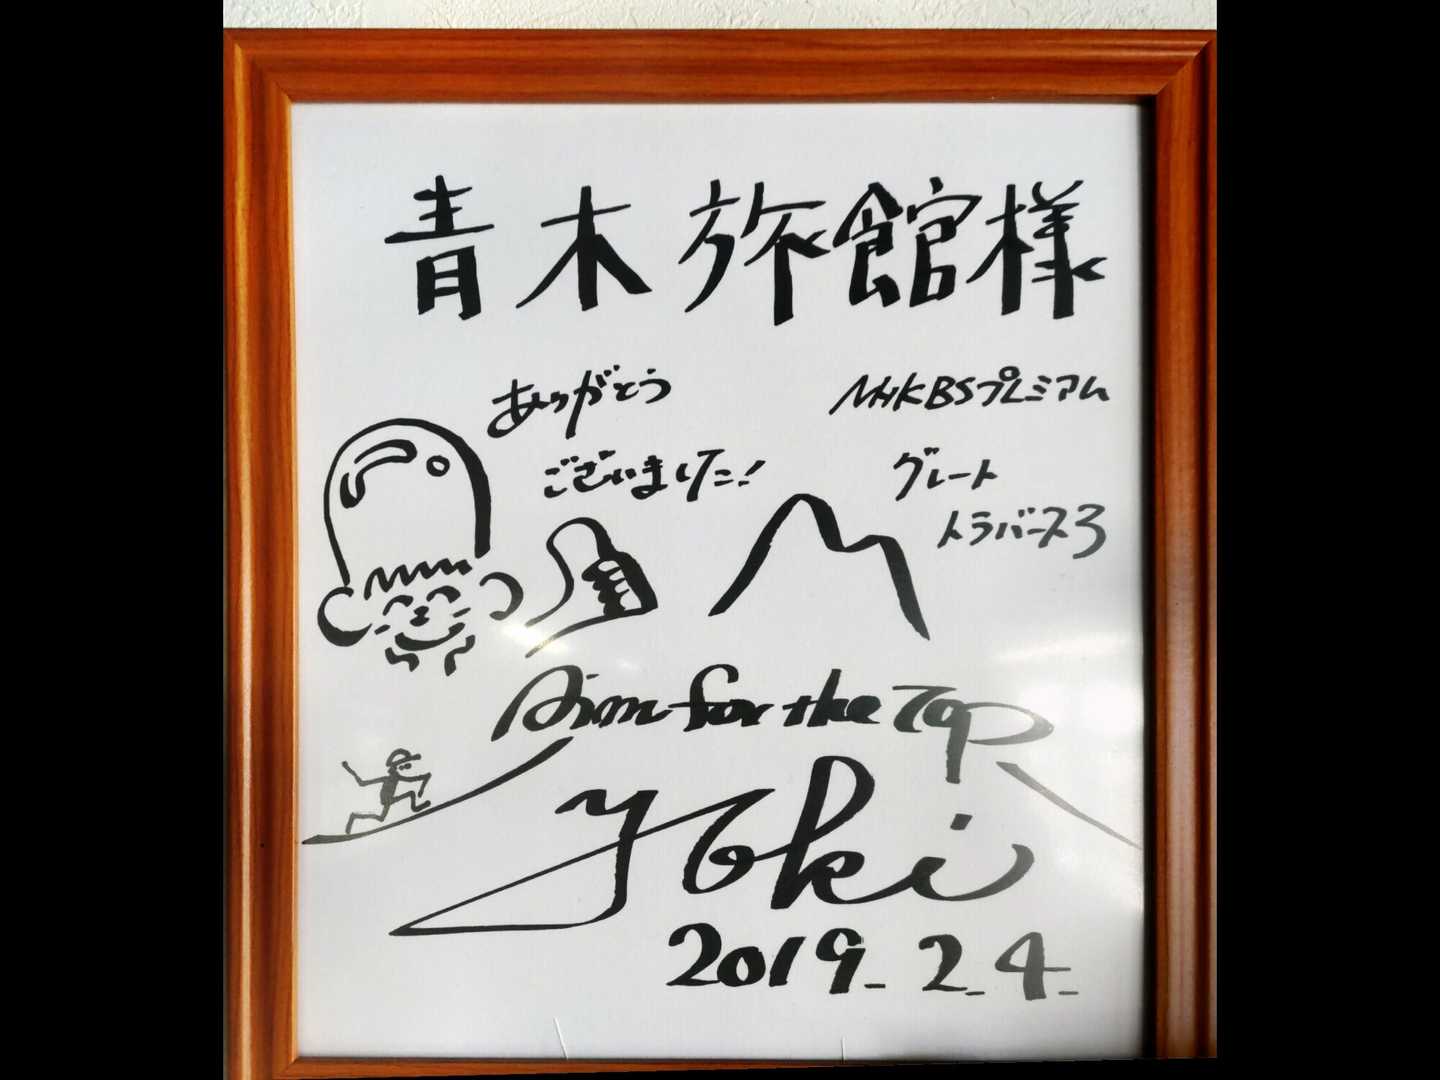 青木旅館様
ありがとう
ございました!
NHKBSプレミアム
グレート
トラバース3
Aim for the Top
Yoki
2019.2.4.